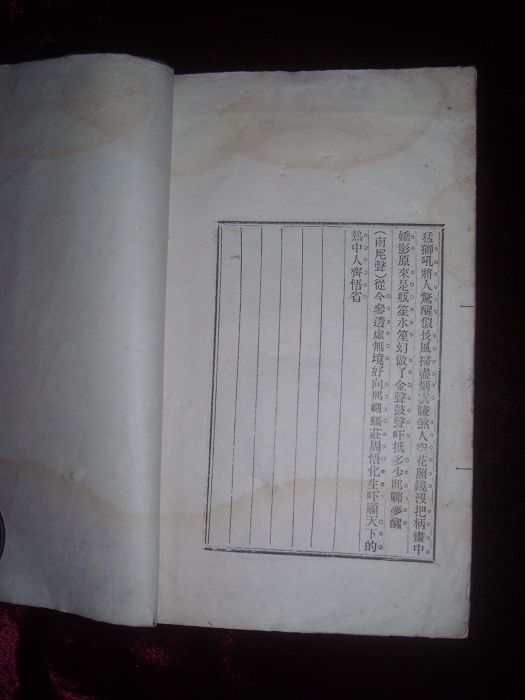 猛獅吼將人驚醒似長風掃盡烟雲賺煞人空花照鏡沒把柄畫中
嬌影原來是瓶笙水笙幻做了金聲鼓聲吓抵多少邯鄲夢醒
(南尾聲)從今參透虛無境好向那蝴蝶莊周悟化生吓願天下的
熱中人齊悟省